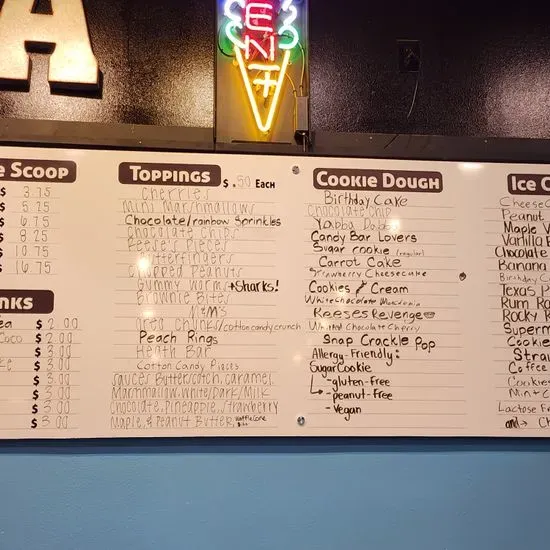 A
ENT
E SCOOP
$ 3.75
$ 5.25
$ 6.75
$ 8.25
$ 10.75
$ 16.75
NKS
ea $ 2.00
Coco $ 2.00
$ 3.00
ke $ 3.00
$ 3.00
$ 3.00
$ 3.00
TOPPINGS $ .50 EACH
Cherries
Mini Marshmallows
Chocolate/rainbow Sprinkles
Chocolate Chips
Reese's Pieces
Butterfingers
Chopped Peanuts
Gummy Worms +Sharks!
Brownie Bites
M&M's
Oreo Chunks/cotton candy crunch
Peach Rings
Heath Bar
Cotton Candy Pieces
Sauces Butterscotch, caramel,
Marshmallow, White/Dark/Milk
Chocolate, Pineapple, Strawberry
Maple, & Peanut Butter, waffle cone
COOKIE DOUGH
Birthday Cake
Chocolate Chip
Yabba Dabba
Candy Bar Lovers
Sugar cookie (regular)
Carrot Cake
Strawberry Cheesecake
Cookies & Cream
White Chocolate Macadamia
Reeses Revenge
White Chocolate Cherry
Snap Crackle Pop
Allergy-Friendly:
Sugar Cookie
-gluten-free
-peanut-free
-vegan
ICE C
Cheesec
Peanut
Maple V
Vanilla B
Chocolate
Banana
Birthday C
Texas P
Rum Ra
Rocky R
Superm
Cookie
Straw
Coffee
Cookies
Mint C
Lactose Fr
and→ Ch